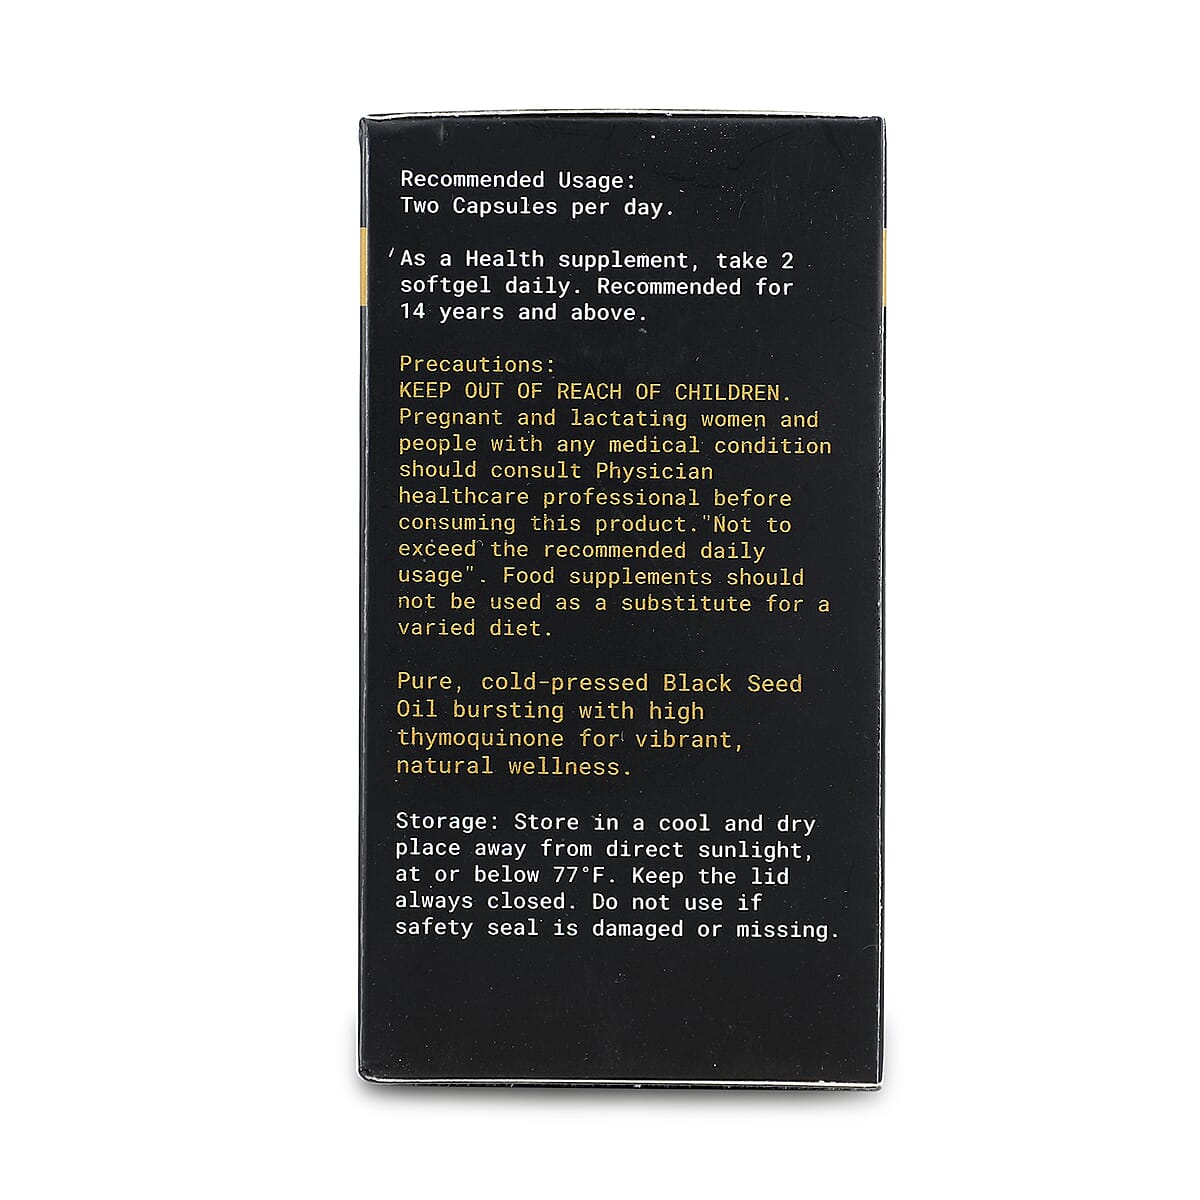 Recommended Usage:
Two Capsules per day.
As a Health supplement, take 2
softgel daily. Recommended for
14 years and above.
Precautions:
KEEP OUT OF REACH OF CHILDREN.
Pregnant and lactating women and
people with any medical condition
should consult Physician
healthcare professional before
consuming this product."Not to
exceed the recommended daily
usage". Food supplements should
not be used as a substitute for a
varied diet.
Pure, cold-pressed Black Seed
Oil bursting with high
thymoquinone for vibrant,
natural wellness.
Storage: Store in a cool and dry
place away from direct sunlight,
at or below 77°F. Keep the lid
always closed. Do not use if
safety seal is damaged or missing.